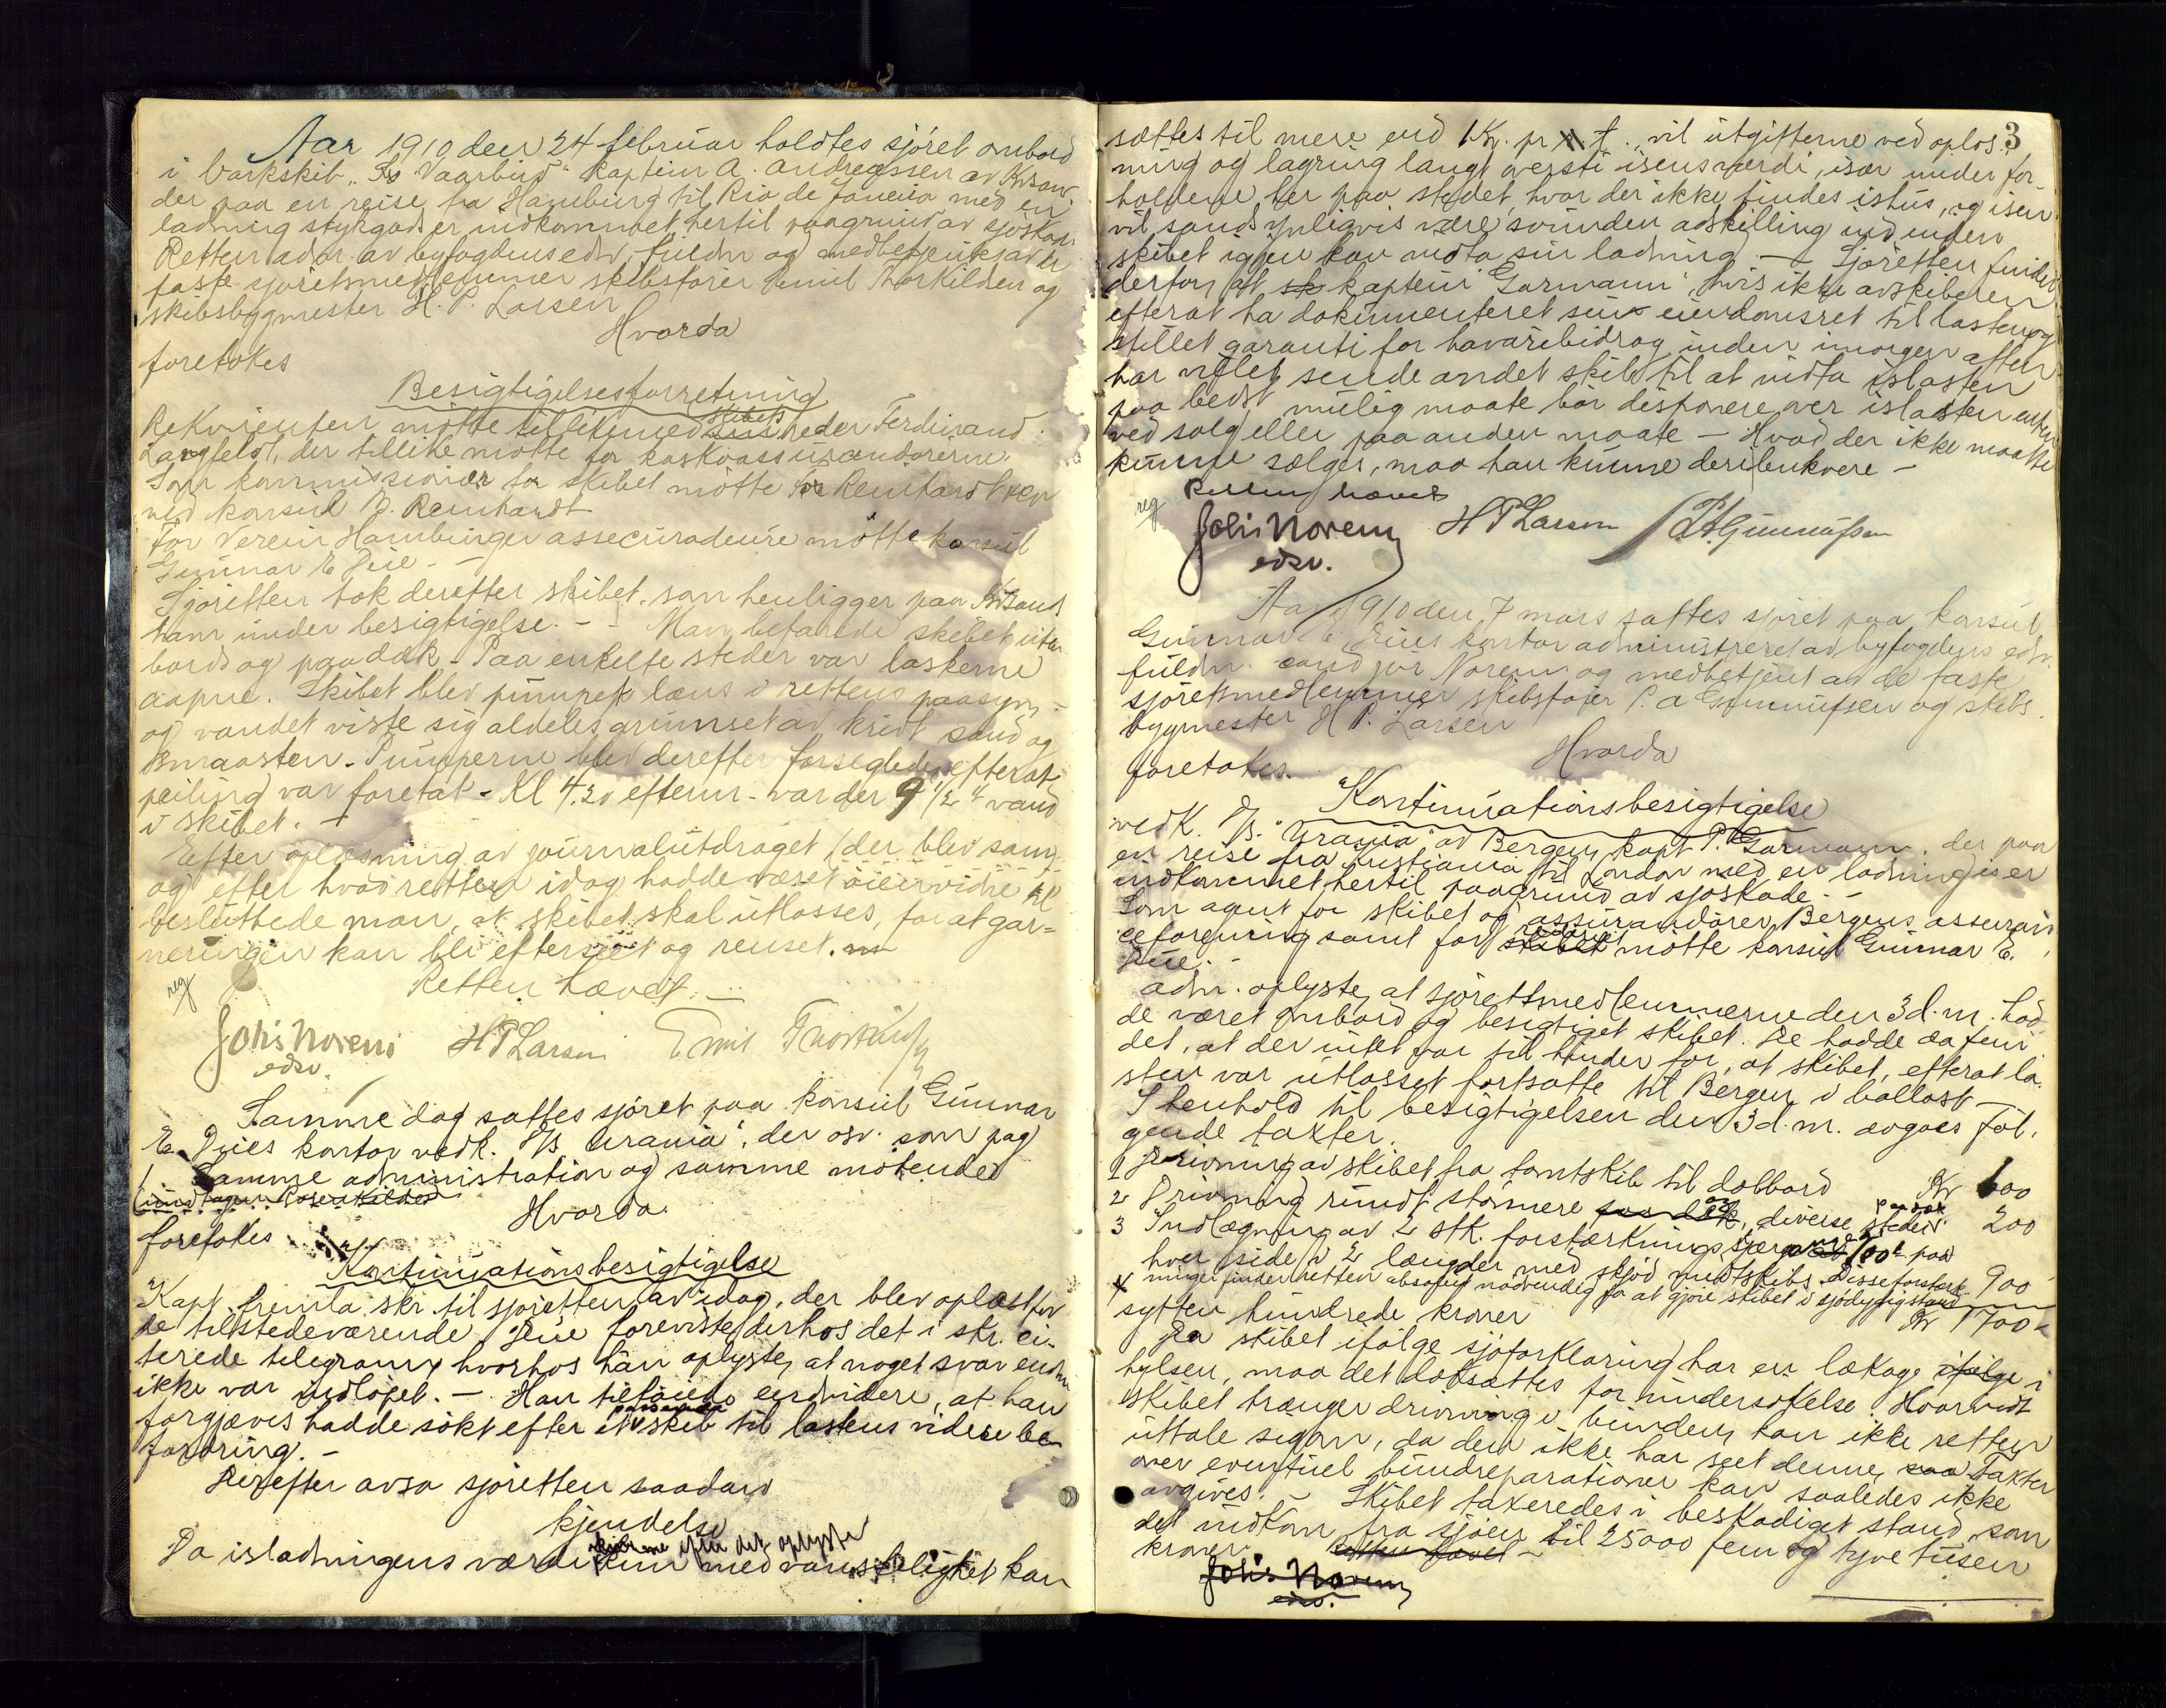 Aar 1910 den 24 februar holdtes sjöret ombord
i barkskib "Vaarbud" kaptein A. Andreassen av Krsand.
der paa en reise fra Hamburg til Rio de Janeiro med en
ladning stykgods er indkommet hertil paagrund av sjöskade.
Retten adm. av byfogdens edsv. fuldm og medbetjent av de
faste sjöretsmedlemmer skibsförer Emil Thorkildsen og
skibsbygmester H. P. Larsen
Hvorda
foretokes
Besigtigelsesforretning
Rekvirenten mötte tillikemed skibets reder Ferdinand
Langfeldt, der tillike mötte for kaskoassurandörerne.
Som kommissionær for skibet mötte Reinhardt & co
ved konsul B. Reinhardt
For Verein Hamburger assecuradeure mötte konsul
Gunnar E Due -
Sjöretten tok derefter skibet, som henligger paa Krsands
havn under besigtigelse. - Man befarede skibet uten
bords og paa dæk - Paa enkelte steder var laskerne
aapne. Skibet blev pumpet læns i rettens paasyn -
og vandet viste sig aldeles grumset av kridt sand og
smaasten - Pumperne blev derefter forseglede, efterat
peiling var foretat - Kl 4.20 efterm - var der 9 1/2" vand
i skibet. -
Efter oplæsning av journalutdraget (der blev
og efter hvad retten idag hadde været öienvidne til
besluttede man, at skibet skal utlosses, for at gar=
neringen kan bli efterseet og renset.
reg Retten hævet. -
Johs Norem H P Larsen Emil Thorkildsen
edsv.
Samme dag sattes sjöret paa konsul Gunnar
E. Dues kontor vedk. S/S "Urania", der osv. som pag
1 Samme administration og samme mötende
(undtagen
foretokes Hvorda
Kontinuationsbesigtigelse
Kapt fremla skr. til sjöretten av idag, der blev oplæst for
de tilstedeværende. Due foreviste derhos det i skr. ci-
terede telegram, hvorhos han oplyste, at noget svar endnu
ikke var indlöpet. - Han tilföiede endvidere, at han
forgjæves hadde sökt efter et passende skib til lastens videre be-
fordring. -
Derefter avsa sjöretten saadan
kjendelse
Da isladningens værdi efter det oplyste med vanskelighet kan
3
sættes til mere end 1 Kr. pr t., vil utgifterne ved oplos-
ning og lagring langt overstige isens værdi, især under for-
holdene her paa stedet, hvor der ikke findes ishus, og isen
vil sandsynligvis være svunden adskillig ind inden
skibet igjen kan indta sin ladning - - Sjöretten finder
derfor, at kaptein Garmann, hvis ikke avskiberen
efterat ha dokumenteret sin eiendomsret til lasten og
stillet garanti for havaribidrag inden imorgen aften
har villet sende andet skib til at indta islasten
paa bedst mulig maate bör disponere over islasten enten
ved salg eller paa anden maate - Hvad der ikke maatte
kunne sælges, maa han kunne
Retten hævet
reg Johs Norem H P Larsen P A Gunnufsen
edsv.
Aar 1910 den 7 mars sattes sjöret paa konsul
Gunnar E Dues kontor administreret av byfogdens edsv.
fuldm. cand jur Norem og medbetjent av de faste
sjöretsmedlemmer skibsförer P. A Gunnufsen og skibs-
bygmester H P. Larsen
Hvorda
foretokes.
Kontinuationsbesigtigelse
vedk. S/S. "Urania" av Bergen, kapt P. Garmann, der paa
en reise fra Kristiania til London med en ladning is er
indkommet hertil paagrund av sjöskade. -
Som agent for skibet og assurandören, Bergens assuran-
ceforening samt for mötte konsul Gunnar E.
Due. -
Adm. oplyste, at sjöretsmedlemmerne den 3 d. m. had-
de været ombord og besigtiget skibet. De hadde da fun
det, at der intet var til hinder for, at skibet, efterat la-
sten var utlosset fortsatte til Bergen i ballast -
I henhold til besigtigelsen den 3 d. m. avgaes föl-
gende takster.
1 Drivning av skibet fra tomtskib til dolbord Kr 600
2 Drivning rundt stönnere paa dæk, diverse steder 200
3 Indlægning av 2 stk. forstærknings 100" paa
hver side i 2 længder med skjöd midtskibs. Disse forstærk- 900
ninger finder retten absolut nödvendig for at gjöre skibet i sjödygtig stand
sytten hundrede kroner Kr 1700
Da skibet ifölge sjöforklaring har en lækage i
hylsen, maa det doksættes for undersökelse. Hvorvidt
skibet trænger drivning i bunden, kan ikke retten
uttale sig om, da den ikke har seet denne, Takster
over eventuel bundreparationer kan saaledes ikke
avgives. - Skibet taxeredes i beskadiget stand, som
det indkom fra sjöen til 25000 fem og tyve tusen
kroner. Retten hævet -
Johs Norem
edsv.